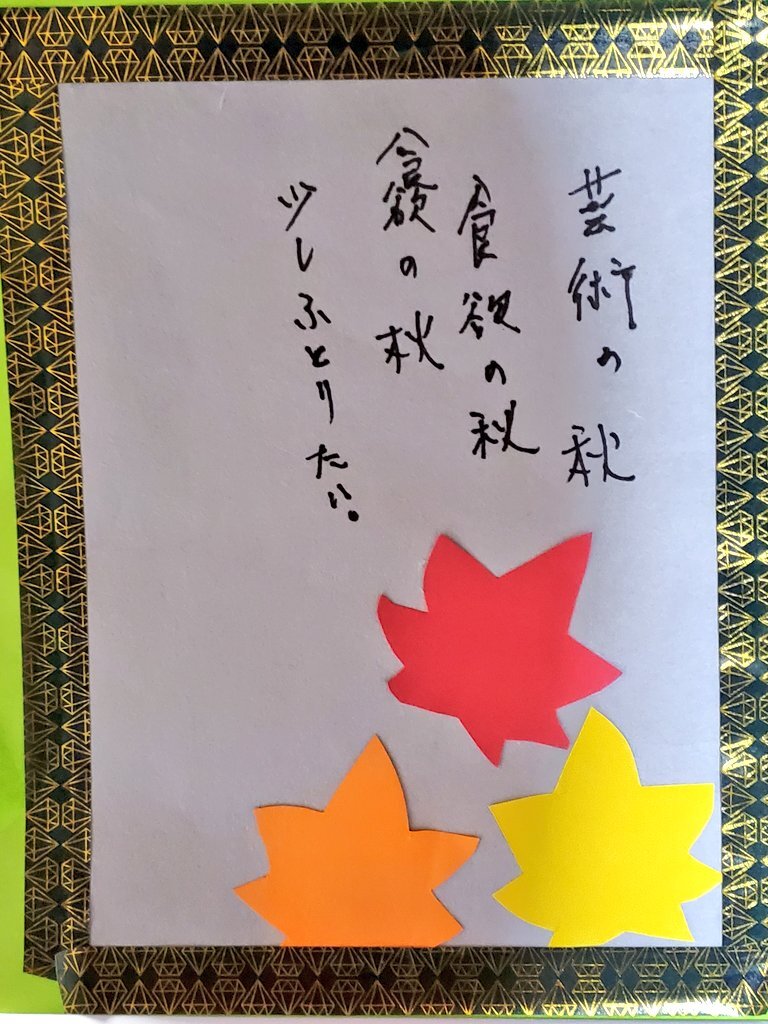 芸術の秋
食欲の秋
食欲の秋
少しふとりたい。